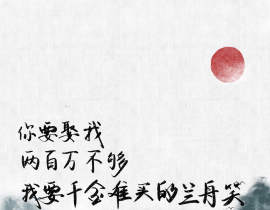 你要娶我
两百万不够
我要千金难买的兰舟笑